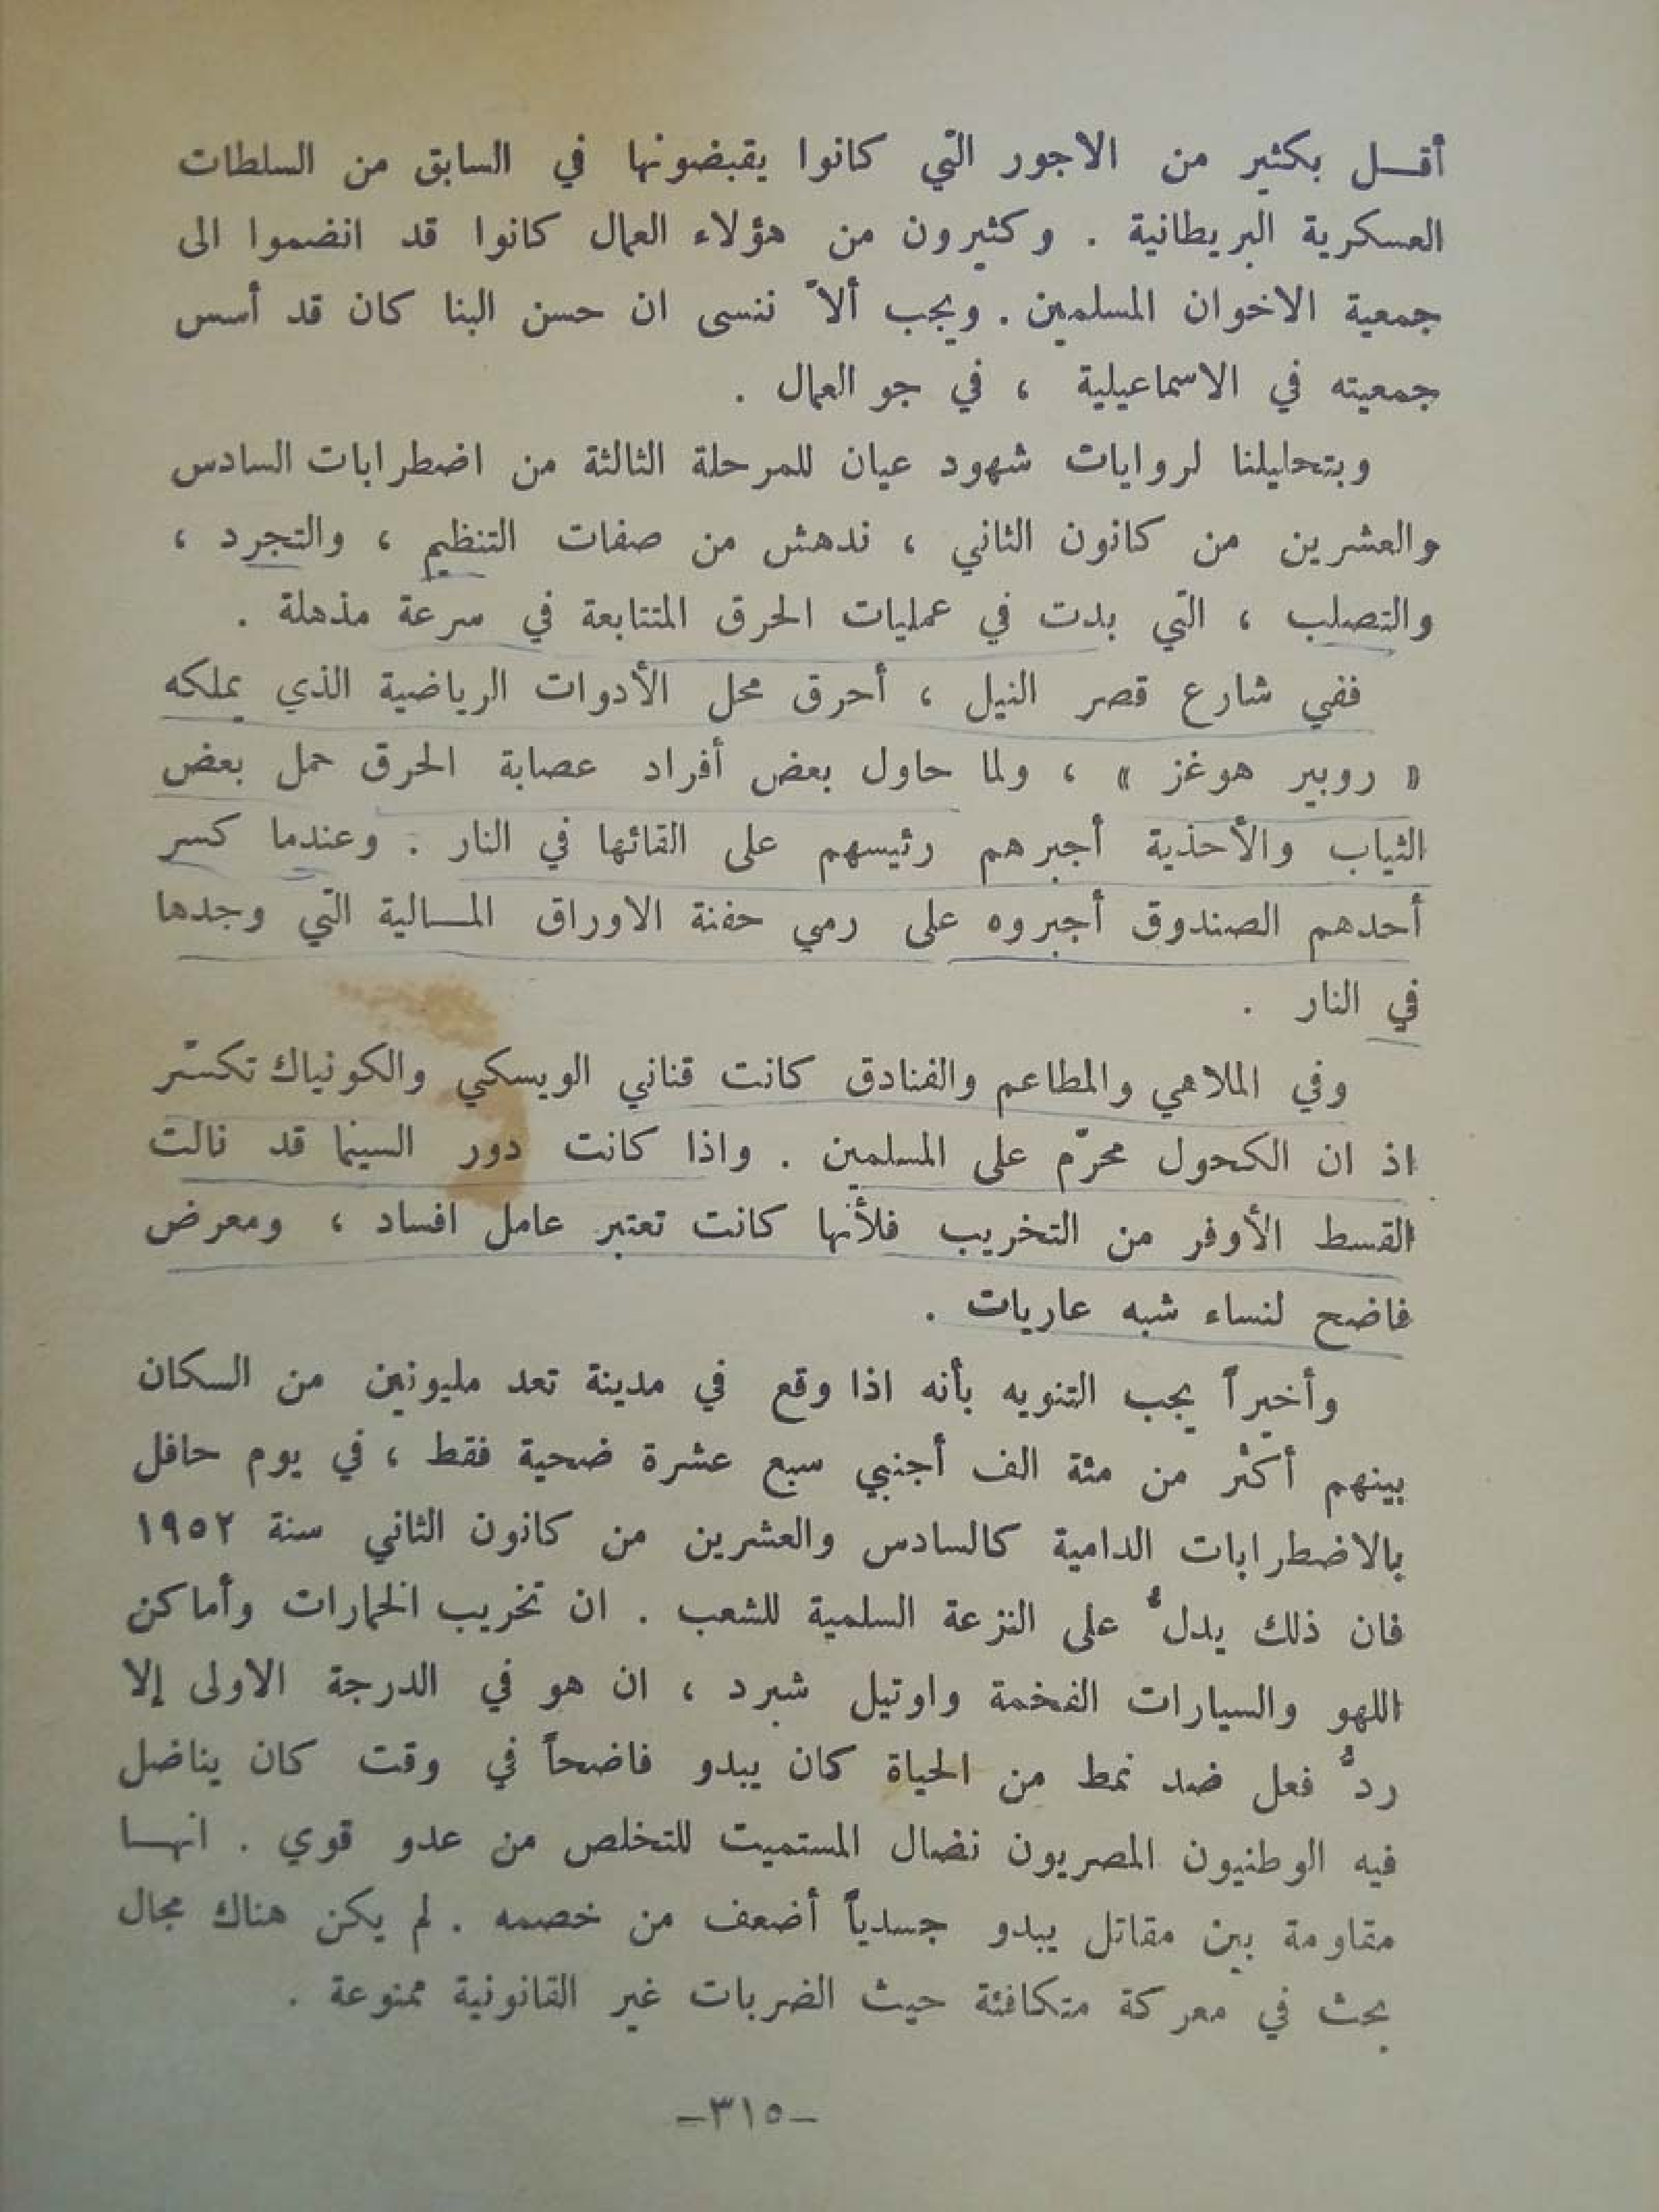 أقـــل بكثير من الاجور التي كانوا يقبضونها في السابق من السلطات
العسكرية البريطانية . وكثيرون من هؤلاء العمال كانوا قد انضموا الى
جمعية الاخوان المسلمين . ويجب ألاّ ننسى ان حسن البنا كان قد أسس
جمعيته في الاسماعيلية ، في جو العمال .
وبتحليلنا لروايات شهود عيان للمرحلة الثالثة من اضطرابات السادس
والعشرين من كانون الثاني ، ندهش من صفات التنظيم ، والتجرد ،
والتصلب ، التي بدت في عمليات الحرق المتتابعة في سرعة مذهلة .
ففي شارع قصر النيل ، أحرق محل الأدوات الرياضية الذي يملكه
« روبير هوغز » ، ولما حاول بعض أفراد عصابة الحرق حمل بعض
الثياب والأحذية أجبرهم رئيسهم على القائها في النار . وعندما كسر
أحدهم الصندوق أجبروه على رمي حفنة الاوراق المـــالية التي وجدها
في النار .
وفي الملاهي والمطاعم والفنادق كانت قناني الويسكي والكونياك تكسّر
اذ ان الكحول محرّم على المسلمين . واذا كانت دور السينما قد نالت
القسط الأوفر من التخريب فلأنها كانت تعتبر عامل افساد ، ومعرض
فاضح لنساء شبه عاريات .
وأخيراً يجب التنويه بأنه اذا وقع في مدينة تعد مليونين من السكان
بينهم أكثر من مئة الف أجنبي سبع عشرة ضحية فقط ، في يوم حافل
بالاضطرابات الدامية كالسادس والعشرين من كانون الثاني سنة ١٩٥٢
فان ذلك يدلُّ على النزعة السلمية للشعب . ان تخريب الخمارات وأماكن
اللهو والسيارات الفخمة واوتيل شبرد ، ان هو في الدرجة الاولى إلا
ردُّ فعل ضد نمط من الحياة كان يبدو فاضحاً في وقت كان يناضل
فيه الوطنيون المصريون نضال المستميت للتخلص من عدو قوي . انهـــا
مقاومة بين مقاتل يبدو جسدياً أضعف من خصمه . لم يكن هناك مجال
بحث في معركة متكافئة حيث الضربات غير القانونية ممنوعة .
–٣١٥–